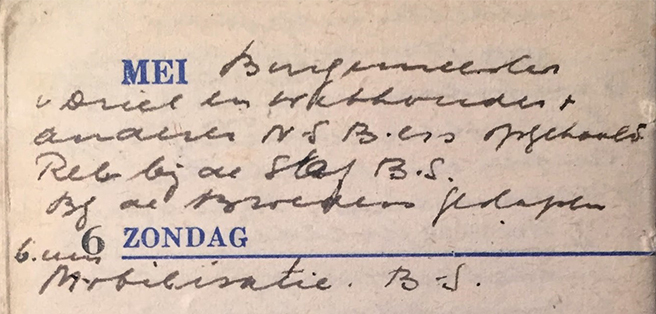 MEI Burgemeester
v Driel en Wethouder +
anderen N.S.B.ers opgehaald
bij de Staf B.S.
Bij de Broeders geslapen
6 ZONDAG
6. uur
Mobilisatie. B.S.